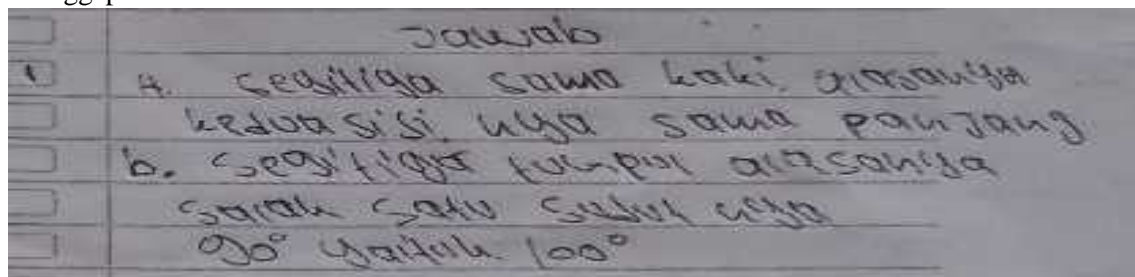 Jawab
1 A. segitiga sama kaki alasannya
kedua sisi nya sama panjang
b. segitiga tumpul alasannya
salah satu sudut nya
90° yaitu 100°